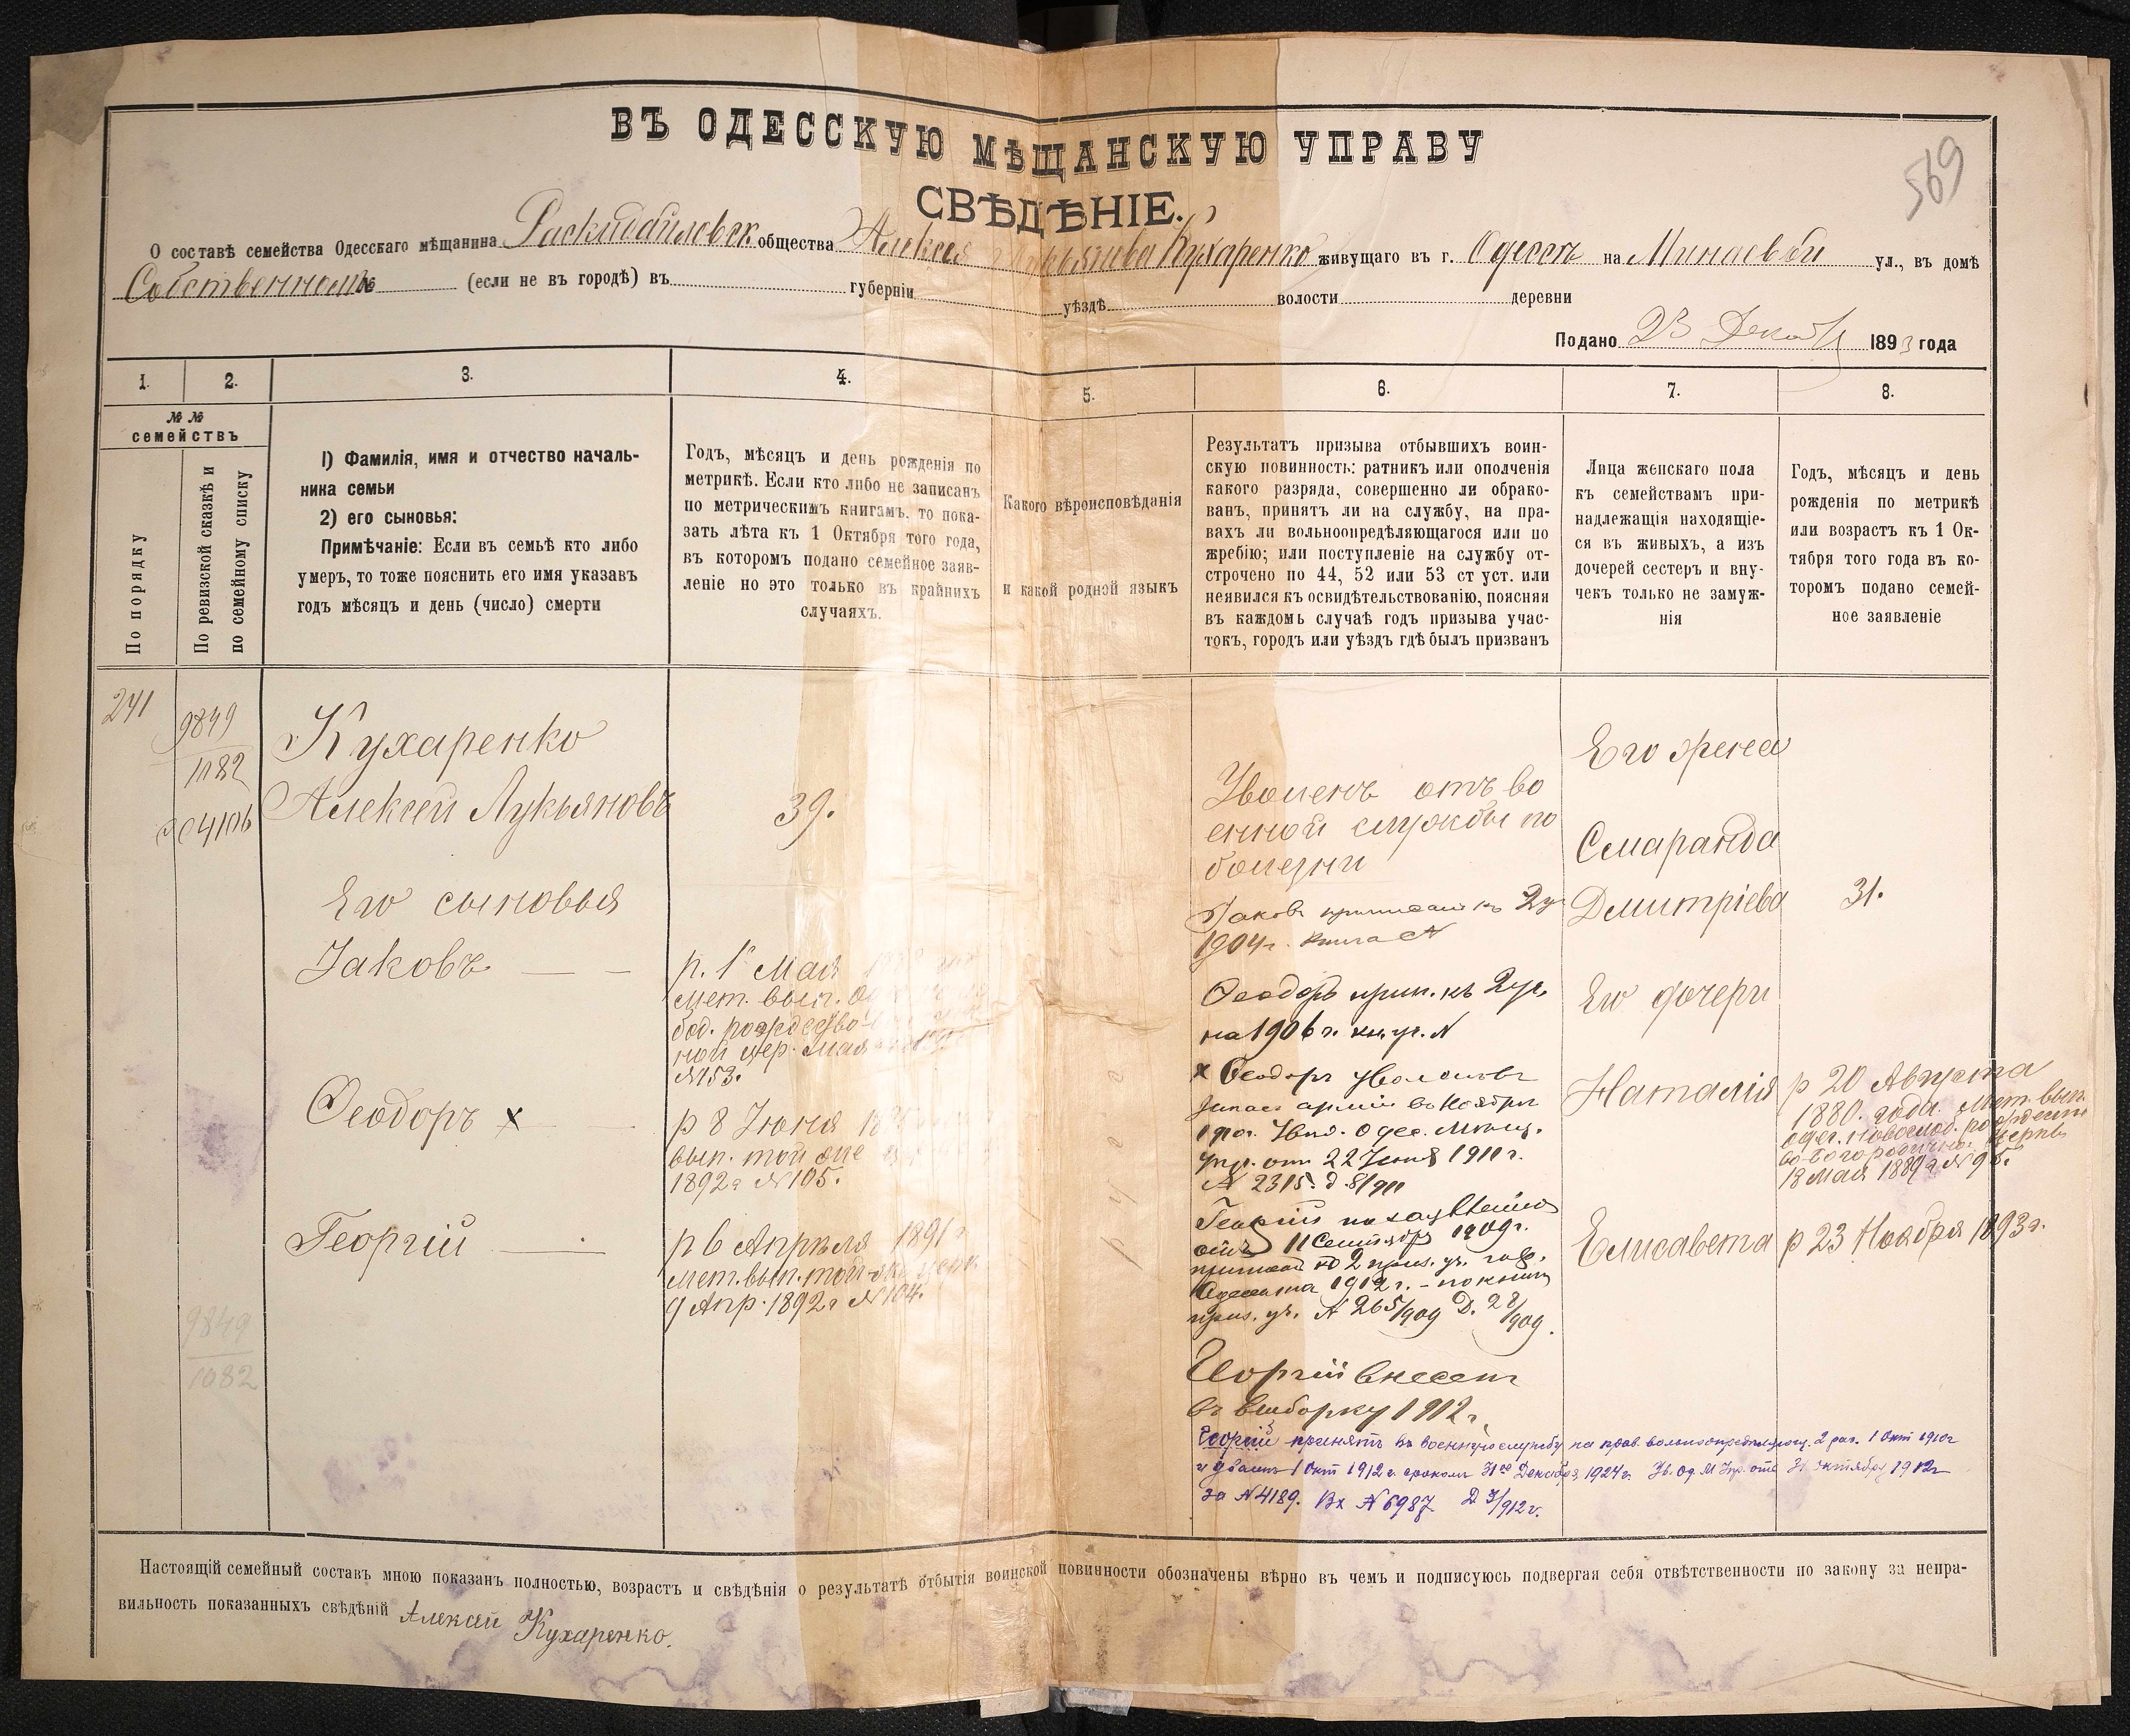 569
ВЪ ОДЕССКУЮ МѢЩАНСКУЮ УПРАВУ
СВѢДѢНІЕ.
О составѣ семейства Одесскаго мѣщанина Раскидайловск общества Алексея Лукьянова Кухаренко живущаго въ г. Одессѣ на Минаевой ул., въ домѣ
Собственномъ № (если не въ городѣ) въ губерніи уѣздѣ волости деревни
Подано 23 Декабр 1893 года
1. 2. 3. 4. 5. 6. 7. 8.
№ №
семействъ
По порядку
По ревизской сказкѣ и
по семейному списку
1) Фамилія, имя и отчество началь-
ника семьи
2) его сыновья:
Примѣчаніе: Если въ семьѣ кто либо
умеръ, то тоже пояснить его имя указавъ
годъ мѣсяцъ и день (число) смерти
Годъ, мѣсяцъ и день рожденія по
метрикѣ. Если кто либо не записанъ
по метрическимъ книгамъ. то пока-
зать лѣта къ 1 Октября того года,
въ которомъ подано семейное заяв-
леніе но это только въ крайнихъ
случаяхъ.
Какого вѣроисповѣданія
и какой родной языкъ
Результатъ призыва отбывшихъ воин-
скую повинность: ратникъ или ополченія
какого разряда, совершенно ли обрако-
ванъ, принятъ ли на службу, на пра-
вахъ ли вольноопредѣляющагося или по
жребію; или поступленіе на службу от-
строчено по 44, 52 или 53 ст уст. или
неявился къ освидѣтельствованію, поясняя
въ каждомъ случаѣ годъ призыва учас-
токъ, городъ или уѣздъ гдѣ былъ призванъ
Лица женскаго пола
къ семействамъ при-
надлежащія находящіе-
ся въ живыхъ, а изъ
дочерей сестеръ и вну-
чекъ только не замуж-
нія
Годъ, мѣсяцъ и день
рожденія по метрикѣ
или возрастъ къ 1 Ок-
тября того года въ ко-
торомъ подано семей-
ное заявленіе
241
9849
1182
Кухаренко
Алексей Лукьяновъ
39.
Его сыновья
Іаковъ
р. 1 Мая
мет. вып.
ной цер. Мая
№153.
Ѳеодоръ х
р 8 Іюня
вып. той же
1892 г №105.
Георгій
р 6 Апрѣля 1891 г
мет. вып. той-же церк
9 Апр. 1892 г №104.
9849
1082
Уволенъ отъ во
енной службы по
болезни
Іаковъ приписан къ 2 уч
1904 г. книга №
Ѳеодоръ прип. къ 2 уч.
на 1906 г. кн. уч. №
х Ѳеодоръ уволенъ въ
запас арміи въ Ноябрѣ
1910 г. Увѣд. Одес. Мѣщ.
Упр. отъ 22 Іюня 1911 г.
№ 2315. д. 8/911
Георгій
отъ 11 Сентября 1909 г.
приписан ко 2 приз. уч. гор.
Одессы на 1912 г. - по книгѣ
приз. уч. № 265/909 Д. 28/909.
Георгій внесен
въ выборку 1912 г.
Георгій принятъ въ военную службу на прав. вольноопредѣляющ. 2 раз. 1 Окт 1910 г
и уволенъ 1 Окт 1912 г. срокомъ 31го Декабря 1924 г. Ув. Од. М Упр. отъ 31 октября 1912 г
за №4189. Вх №6987. Д 3/912 г.
Его жена
Смаранда
Дмитріева
31.
Его дочери
Наталія
р 20 Августа
1880. года. Мет. вып.
одес. новослоб. рождест
во-богородичной церкви
18 Мая 1889 г №95.
Елисавета
р 23 Ноября 1893 г.
Настоящій семейный составъ мною показанъ полностью, возрастъ и свѣдѣнія о результатѣ отбытія воинской повинности обозначены вѣрно въ чемъ и подписуюсь подвергая себя отвѣтственности по закону за непра-
вильность показанныхъ свѣдѣній Алексей Кухаренко.